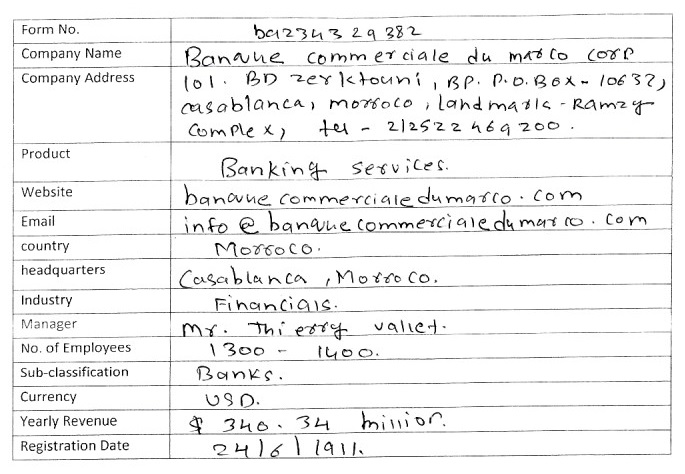 Form No. ba234329382
Company Name Banque commerciale du maroo corp
Company Address 101. BD zerktouni, BP. P.O. Box - 10632,
casablanca, morroco, landmark - Ramzy
complex, tel - 212522469200.
Product Banking services.
Website banquecommercialedumarco.com
Email info@banquecommercialedumarco.com
country Morroco.
headquarters Casablanca, Morroco.
Industry Financials.
Manager Mr. Thierry vallet.
No. of Employees 1300 - 1400.
Sub-classification Banks.
Currency USD.
Yearly Revenue $ 340.34 million.
Registration Date 24/6/1911.